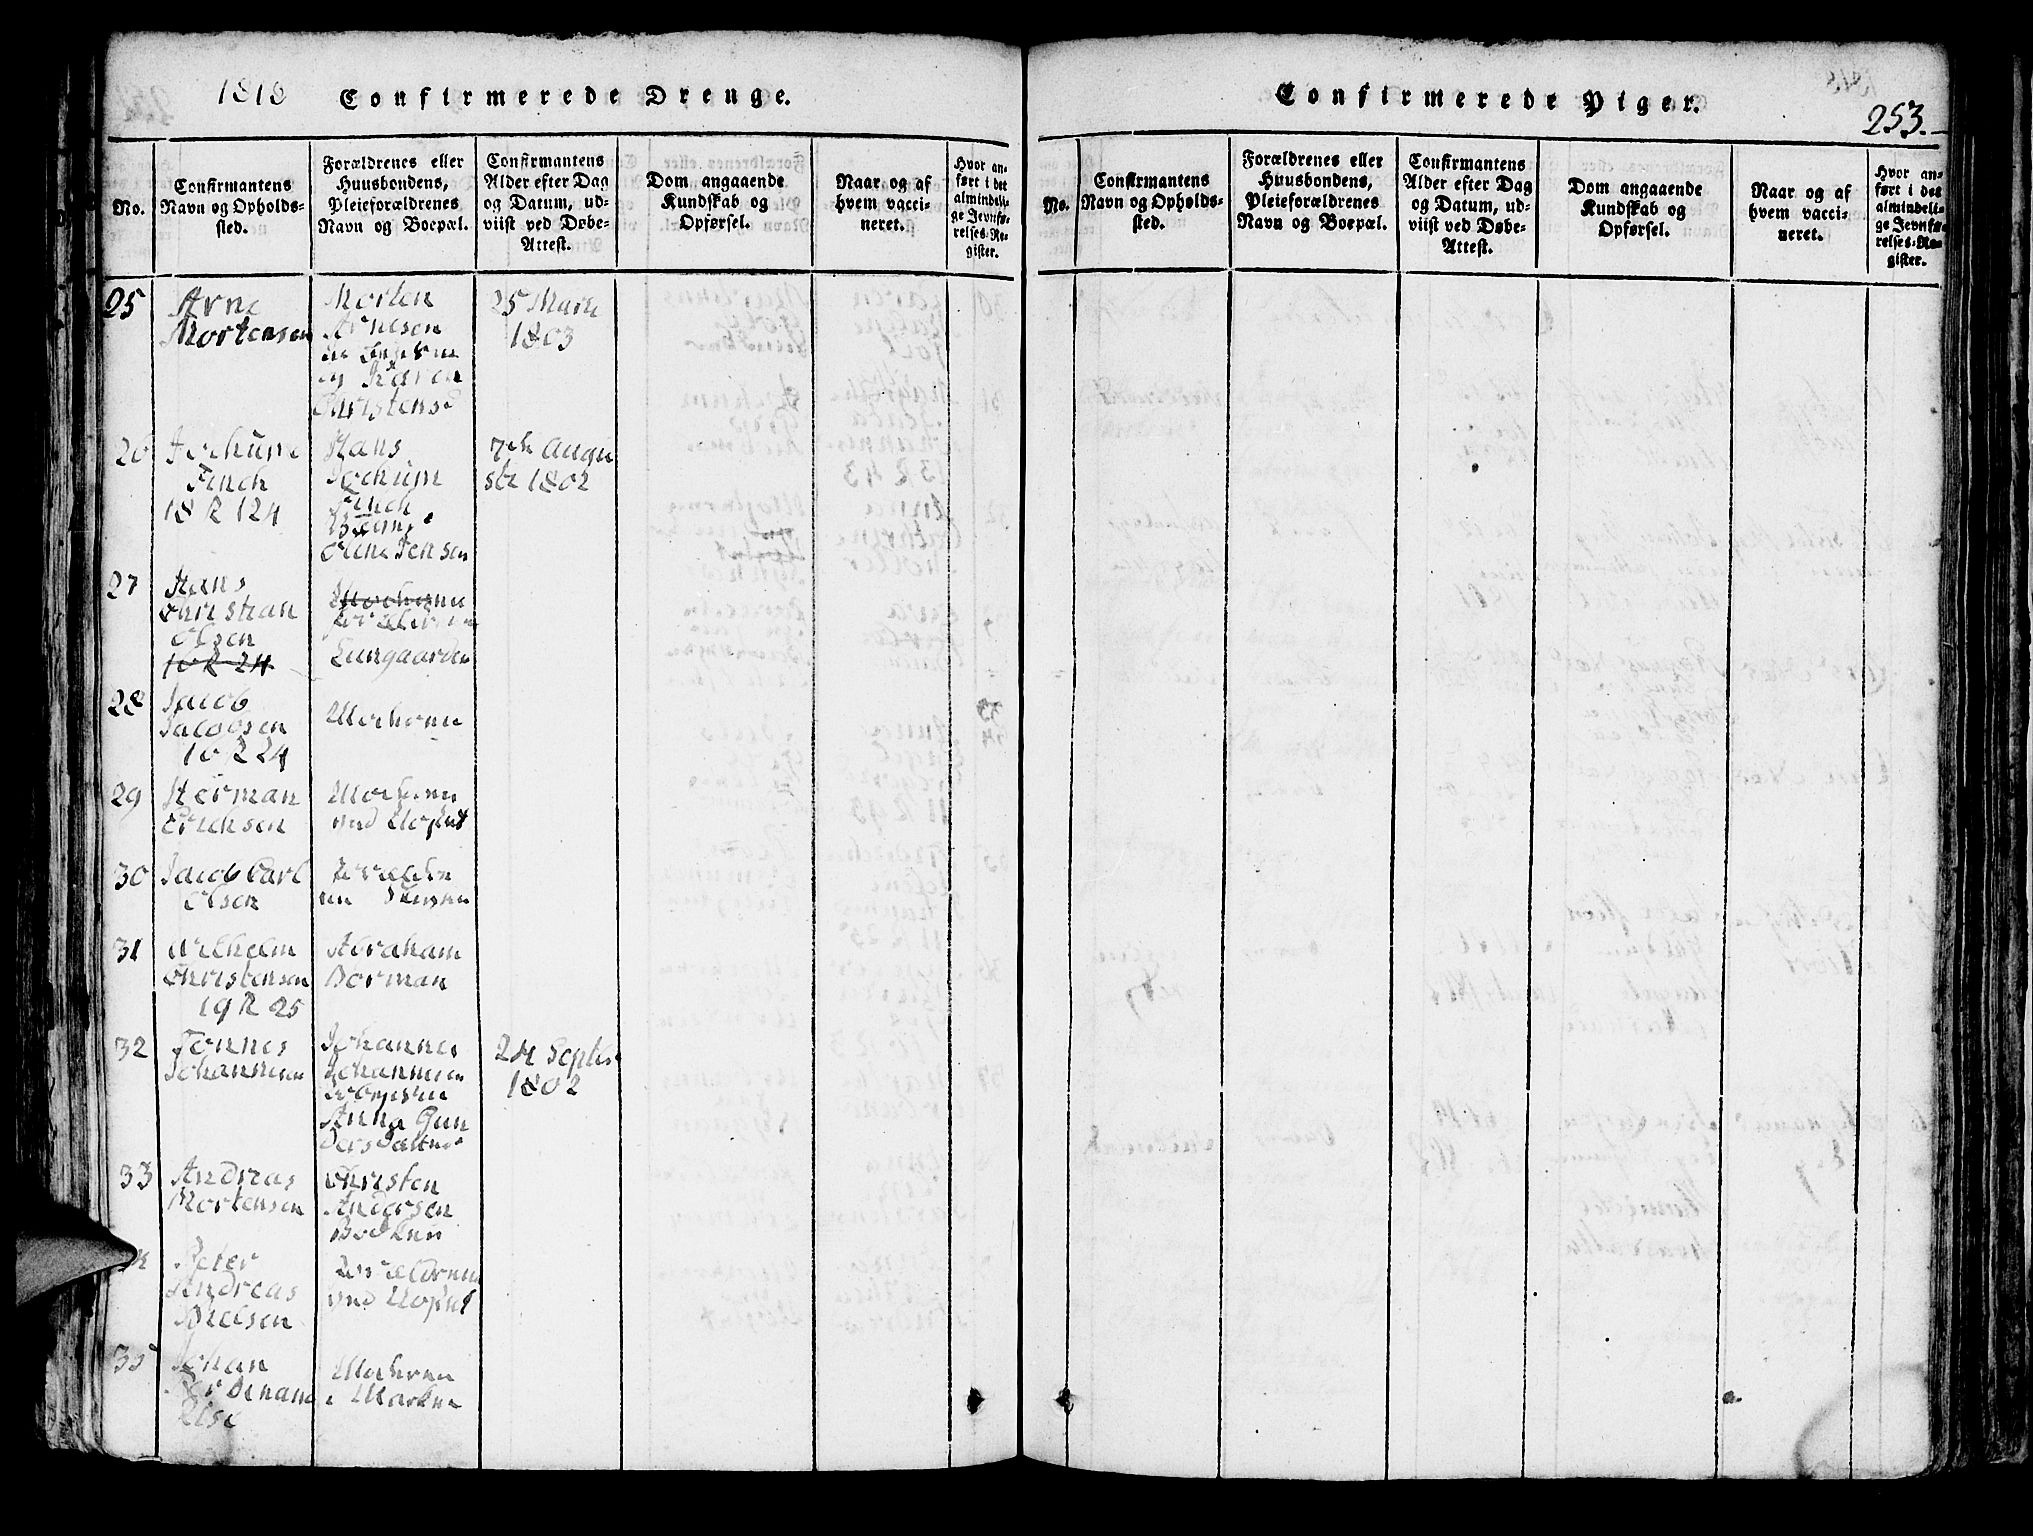 1818 Confirmerede Drenge.
No.
Confirmantens
Navn og Opholds-
sted.
Forældrenes eller
Huusbondens,
Pleieforældrenes
Navn og Boepæl.
Confirmantens
Alder efter Dag
og Datum, ud-
viist ved Døbe-
Attest.
Dom angaaende
Kundskab og
Opførsel.
Naar og af
hvem vacci-
neret.
Hvor an-
ført i det
almindeli-
ge Jevnfø-
relses-Re-
gister.
25
Arne
Mortensen
Morten
Arnesen
og Karen
Christensd
25 Marti
1803
26
Jochum
Finch
18 R 124
Hans
Jochum
Finch
Oline Jensen
7de Augu
sti 1802
27
Hans
Christian
Olsen
10 R 24
Moderen
Forældrene
Lungaarden
28
Jacob
Jacobsen
10 R 24
Moderen
29
Herman
Erichsen
Moderen
30
Jacob Carl
Olsen
31
Wilhelm
Christensen
19 R 25
Abraham
Borman
32
Tønnes
Johannesen
Johannes
Johannesen
Anna Gun
dersdatter
24 Septbr
1802
33
Andreas
Mortensen
Christen
Andersen
34
Peter
Andreas
Forældrene
35
Johan
Ferdinand
Moderen
i Marken
Confirmerede Piger.
253.
No.
Confirmantens
Navn og Opholds-
sted.
Forældrenes eller
Huusbondens,
Pleieforældrenes
Navn og Boepæl.
Confirmantens
Alder efter Dag
og Datum, ud-
viist ved Døbe-
Attest.
Dom angaaende
Kundskab og
Opførsel.
Naar og af
hvem vacci-
neret.
Hvor an-
ført i det
almindeli-
ge Jevnfø-
relses-Re-
gister.